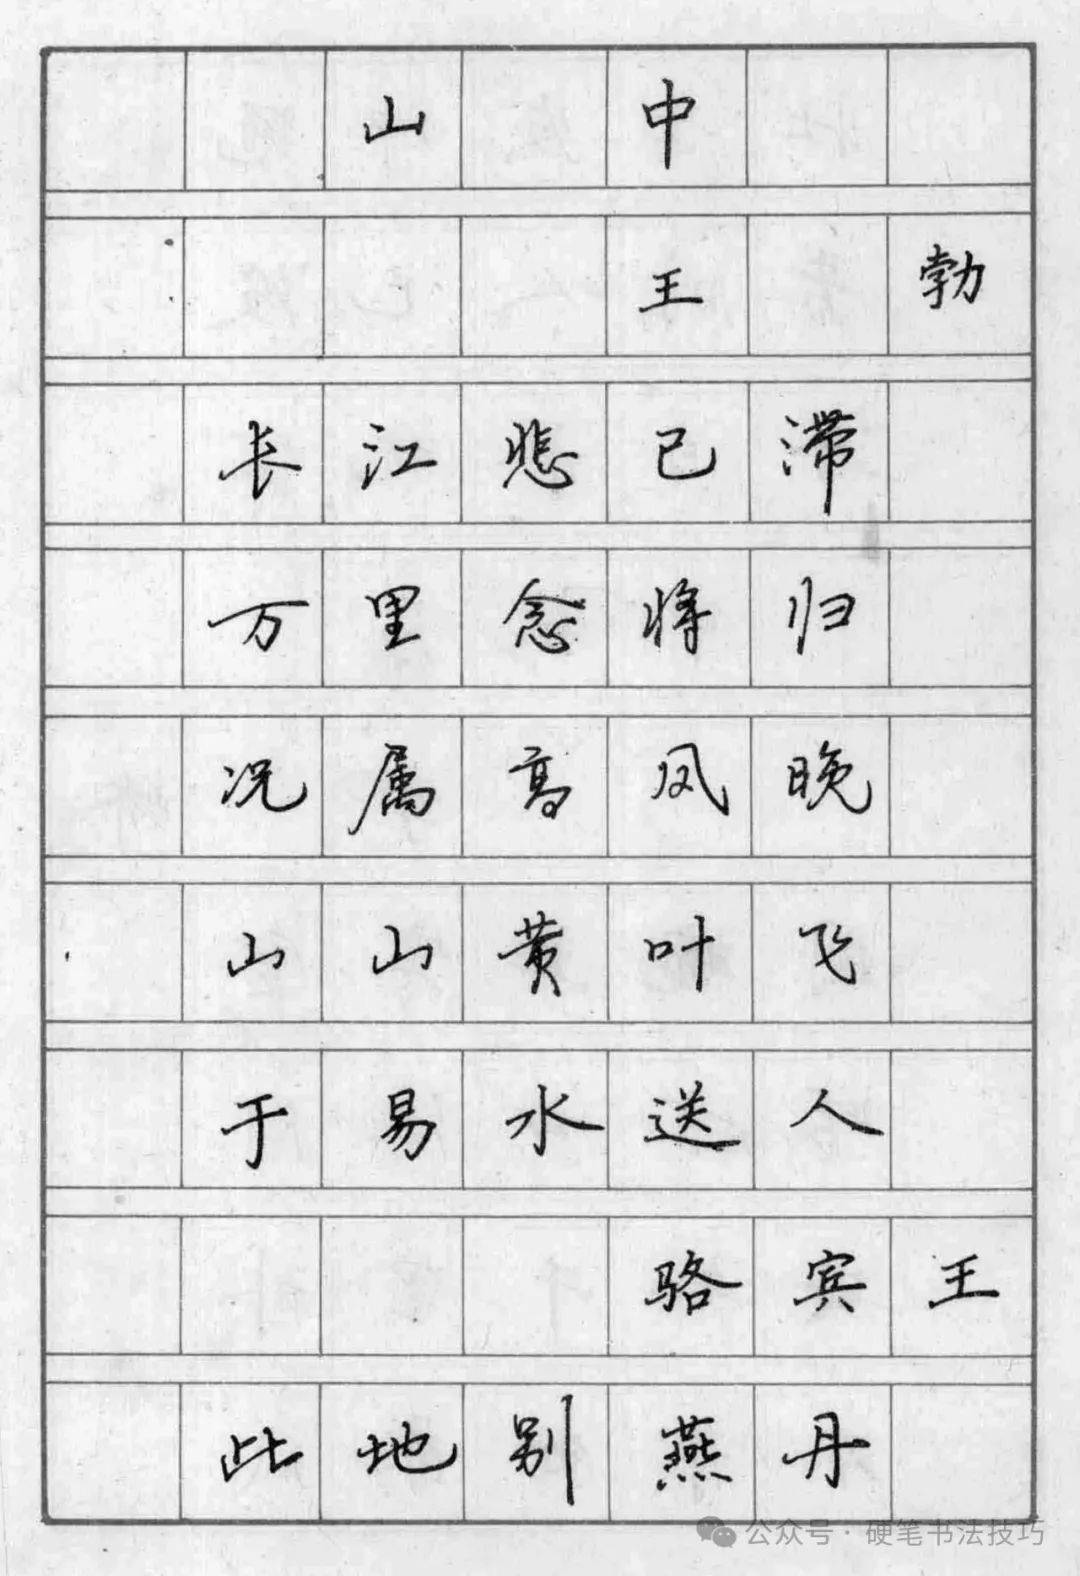 山中
王勃
长江悲已滞
万里念将归
况属高风晚
山山黄叶飞
于易水送人
骆宾王
此地别燕丹
公众号·硬笔书法技巧